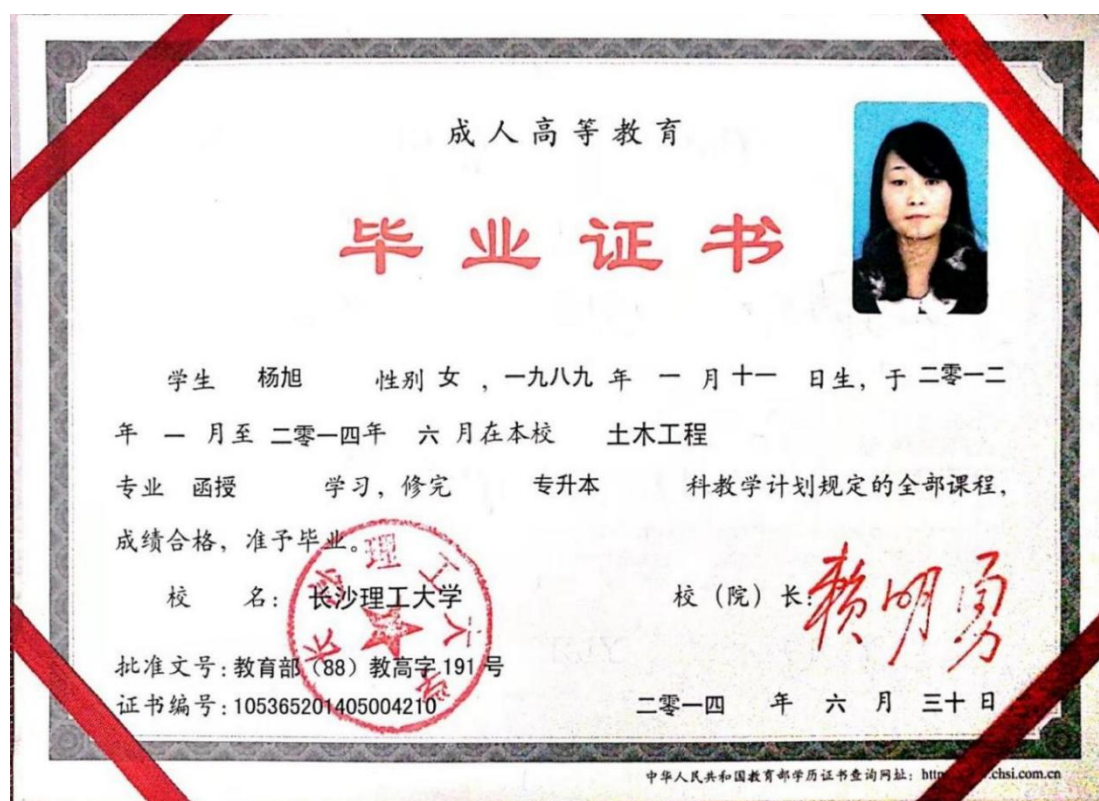 成人高等教育
毕业证书
学生 杨旭 性别 女 ，一九八九 年 一 月 十一 日生，于 二零一二
年 一 月至 二零一四年 六 月在本校 土木工程
专业 函授 学习，修完 专升本 科教学计划规定的全部课程，
成绩合格，准予毕业。
校 名： 长沙理工大学 校（院）长：赖明勇
长沙理工大学
批准文号：教育部（88）教高字 191 号
证书编号：105365201405004210 二零一四 年 六 月 三十 日
中华人民共和国教育部学历证书查询网址：http chsi.com.cn